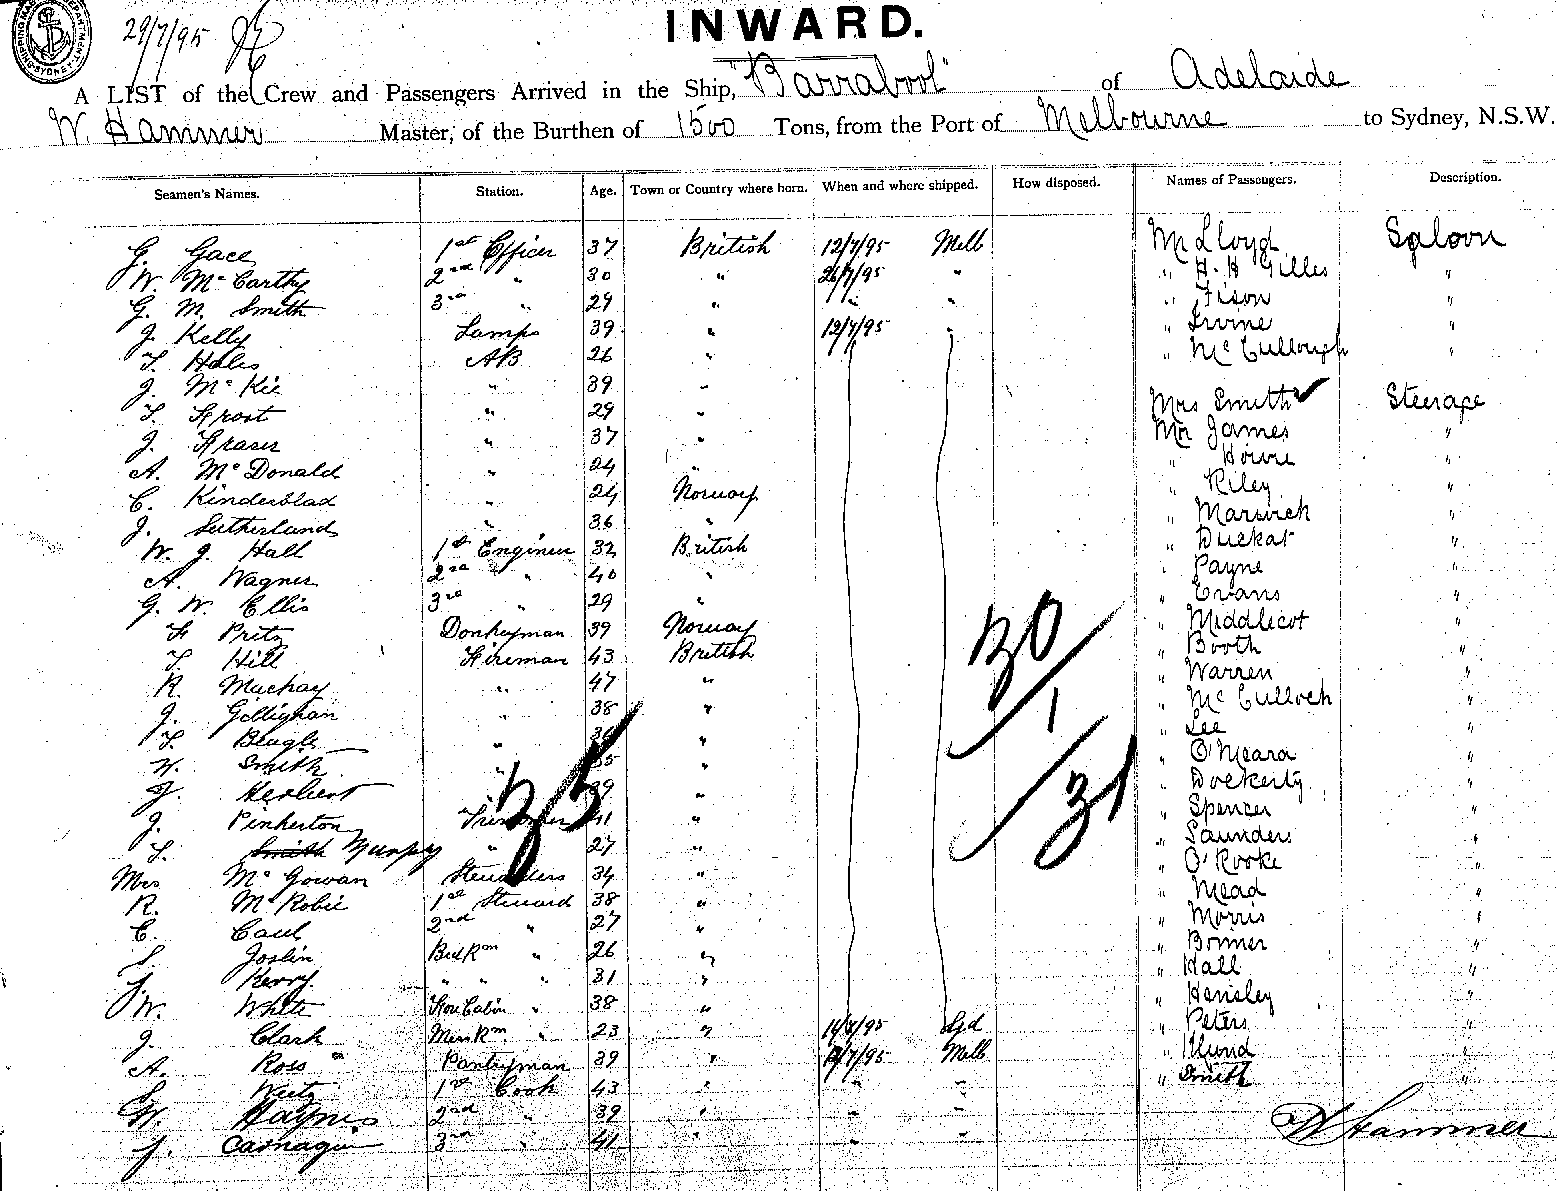 29/7/95
INWARD.
A LIST of the Crew and Passengers Arrived in the Ship, "Barrabool" of Adelaide
W. Hammer Master, of the Burthen of 1500 Tons, from the Port of Melbourne to Sydney, N.S.W.
Seamen's Names. Station. Age. Town or Country where born. When and where shipped. How disposed. Names of Passengers. Description.
G. Gace 1st Officer 37 British 12/7/95 Melb Mr Lloyd Saloon
W. McCarthy 2nd " 30 " 26/7/95 " " H. H Gilles "
G. M. Smith 3rd " 29 " " " " Fison "
J. Kelly Lamps 39 " 12/7/95 " " Irvine "
T. Hales AB 26 " " McCullough "
J. McKie " 39 "
T. Frost " 29 " Mrs Smith Steerage
J. Fraser " 37 " Mr James "
A. McDonald " 24 " " Howe "
C. Kinderblad " 24 Norway " Riley "
J. Sutherland " 36 " " Marwick "
W. J. Hall 1st Engineer 32 British " Duckat "
A. Wagner 2nd " 40 " " Payne "
G. W. Ellis 3rd " 29 " " Evans "
F Pritz Donkeyman 39 Norway " Middlicot "
T. Hill Fireman 43 British " Booth "
R. Mackay " 47 " " Warren "
J. Gillignan " 38 " " McCulloch "
T. Beagle " " " Lee "
W. Smith " 35 " " O'Meara "
J. Herbert " 39 " " Dockerty "
J. Pinkerton Trimmer 41 " " Spencer "
T. Smith Murphy " 27 " " Saunders "
Mrs McGowan Stewardess 34 " " O'Rooke "
R. McRobie 1st Steward 38 " " Mead "
C. Caul 2nd " 27 " " Morris "
S. Joslin Bed Rm " 26 " " Bonner "
Kerry " " " 31 " " Hall "
W. White Fore Cabin " 38 " " Hensley "
J. Clark Mess Rm " 23 " 14/7/95 Syd " Peters "
A. Ross Pantryman 39 " 12/7/95 Melb " "
S Weitz 1st Cook 43 " " " " Smith "
W. Haynes 2nd " 39 " " "
J. Carnagie 3rd " 41 " " "
30
1
31
35
W Hammer